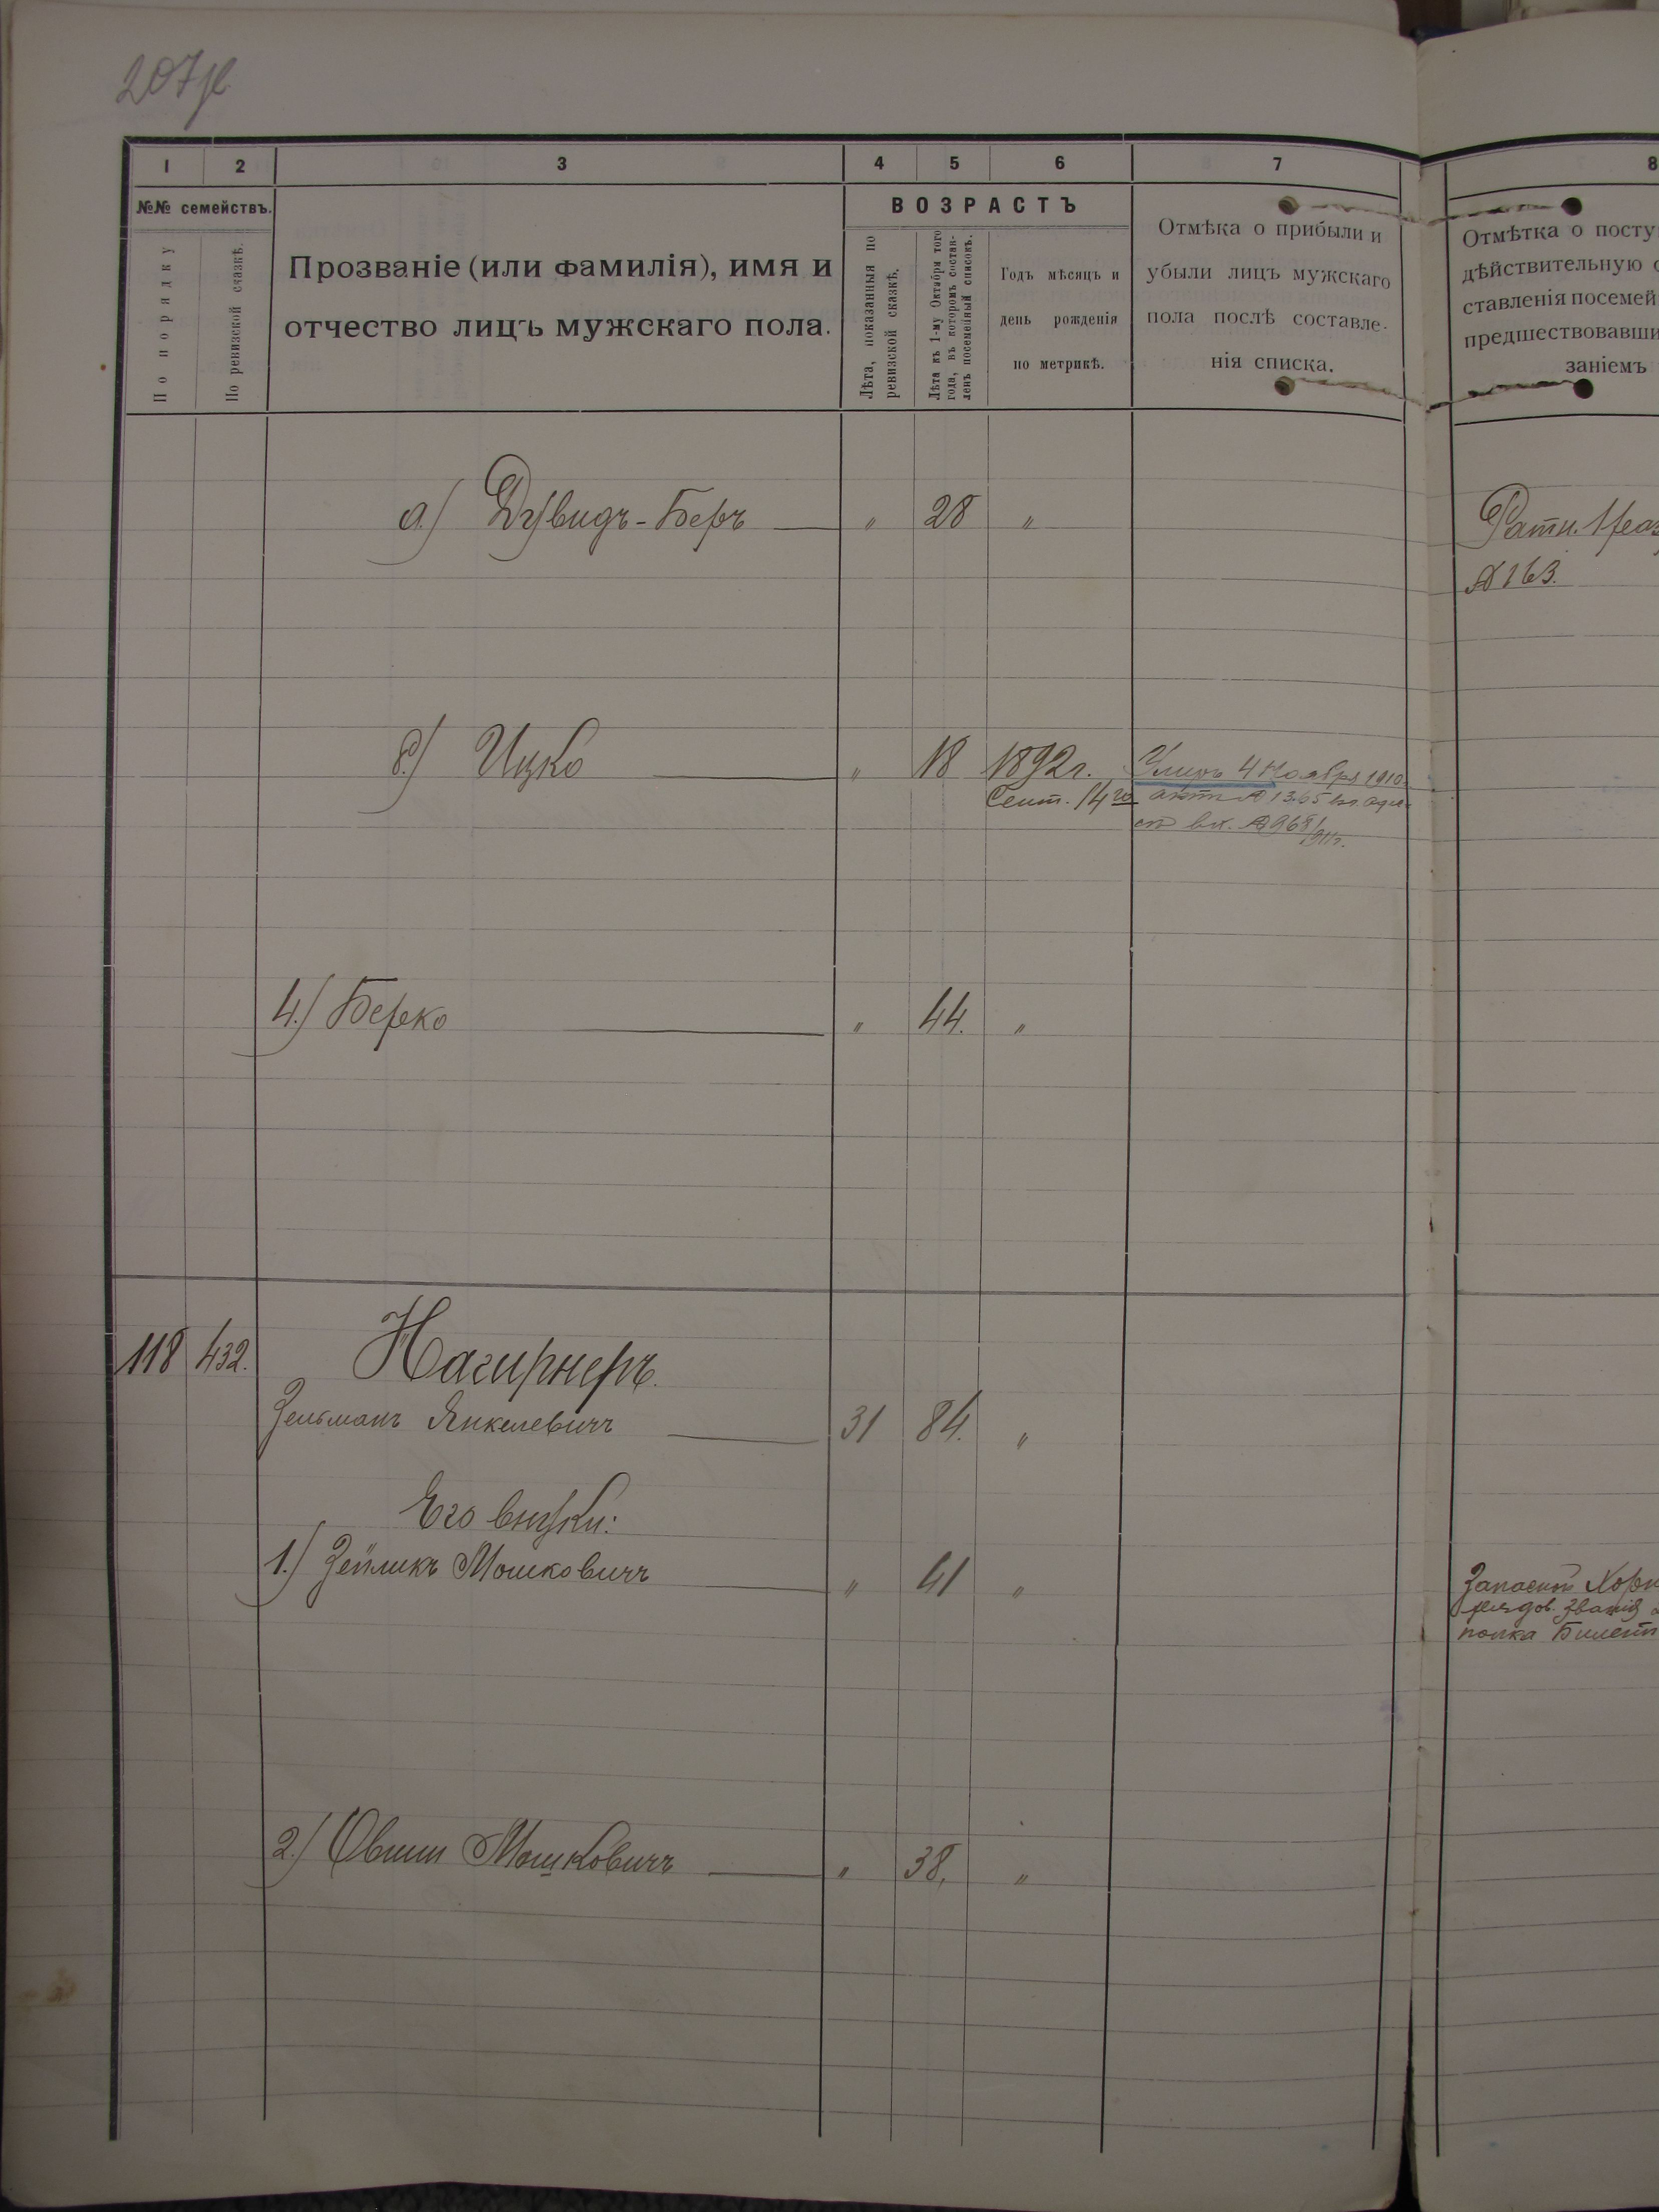 207
1 2 3 4 5 6 7 8
№№ семействъ.
По порядку
По ревизской сказкѣ.
Прозваніе (или фамилія), имя и
отчество лицъ мужскаго пола.
ВОЗРАСТЪ
Лѣта, показанныя по
ревизской сказкѣ.
Лѣта къ 1-му Октября того
года, въ которомъ состав-
ленъ посемейный списокъ.
Годъ мѣсяцъ и
день рожденія
по метрикѣ.
Отмѣка о прибыли и
убыли лицъ мужскаго
пола послѣ составле-
нія списка.
Отмѣтка о посту
дѣйствительную
ставленія посемей
предшествовавши
заніемъ
а) Дувидъ-Беръ „ 28 „
Ратн. 1 раз
№ 163.
б) Ицко „ 18 1892 г.
Сент. 14 го
Умеръ 4 Ноября 1910
актъ № 1365
вх. № 968/911 г.
4.) Берко „ 44. „
118 432. Нагирнеръ.
Зельманъ Янкелевичъ 31 84. „
Его внуки:
1.) Зейликъ Мошковичъ „ 41 „
рядов. званія
полка Билетъ
2.) Овшія Мошковичъ „ 38. „